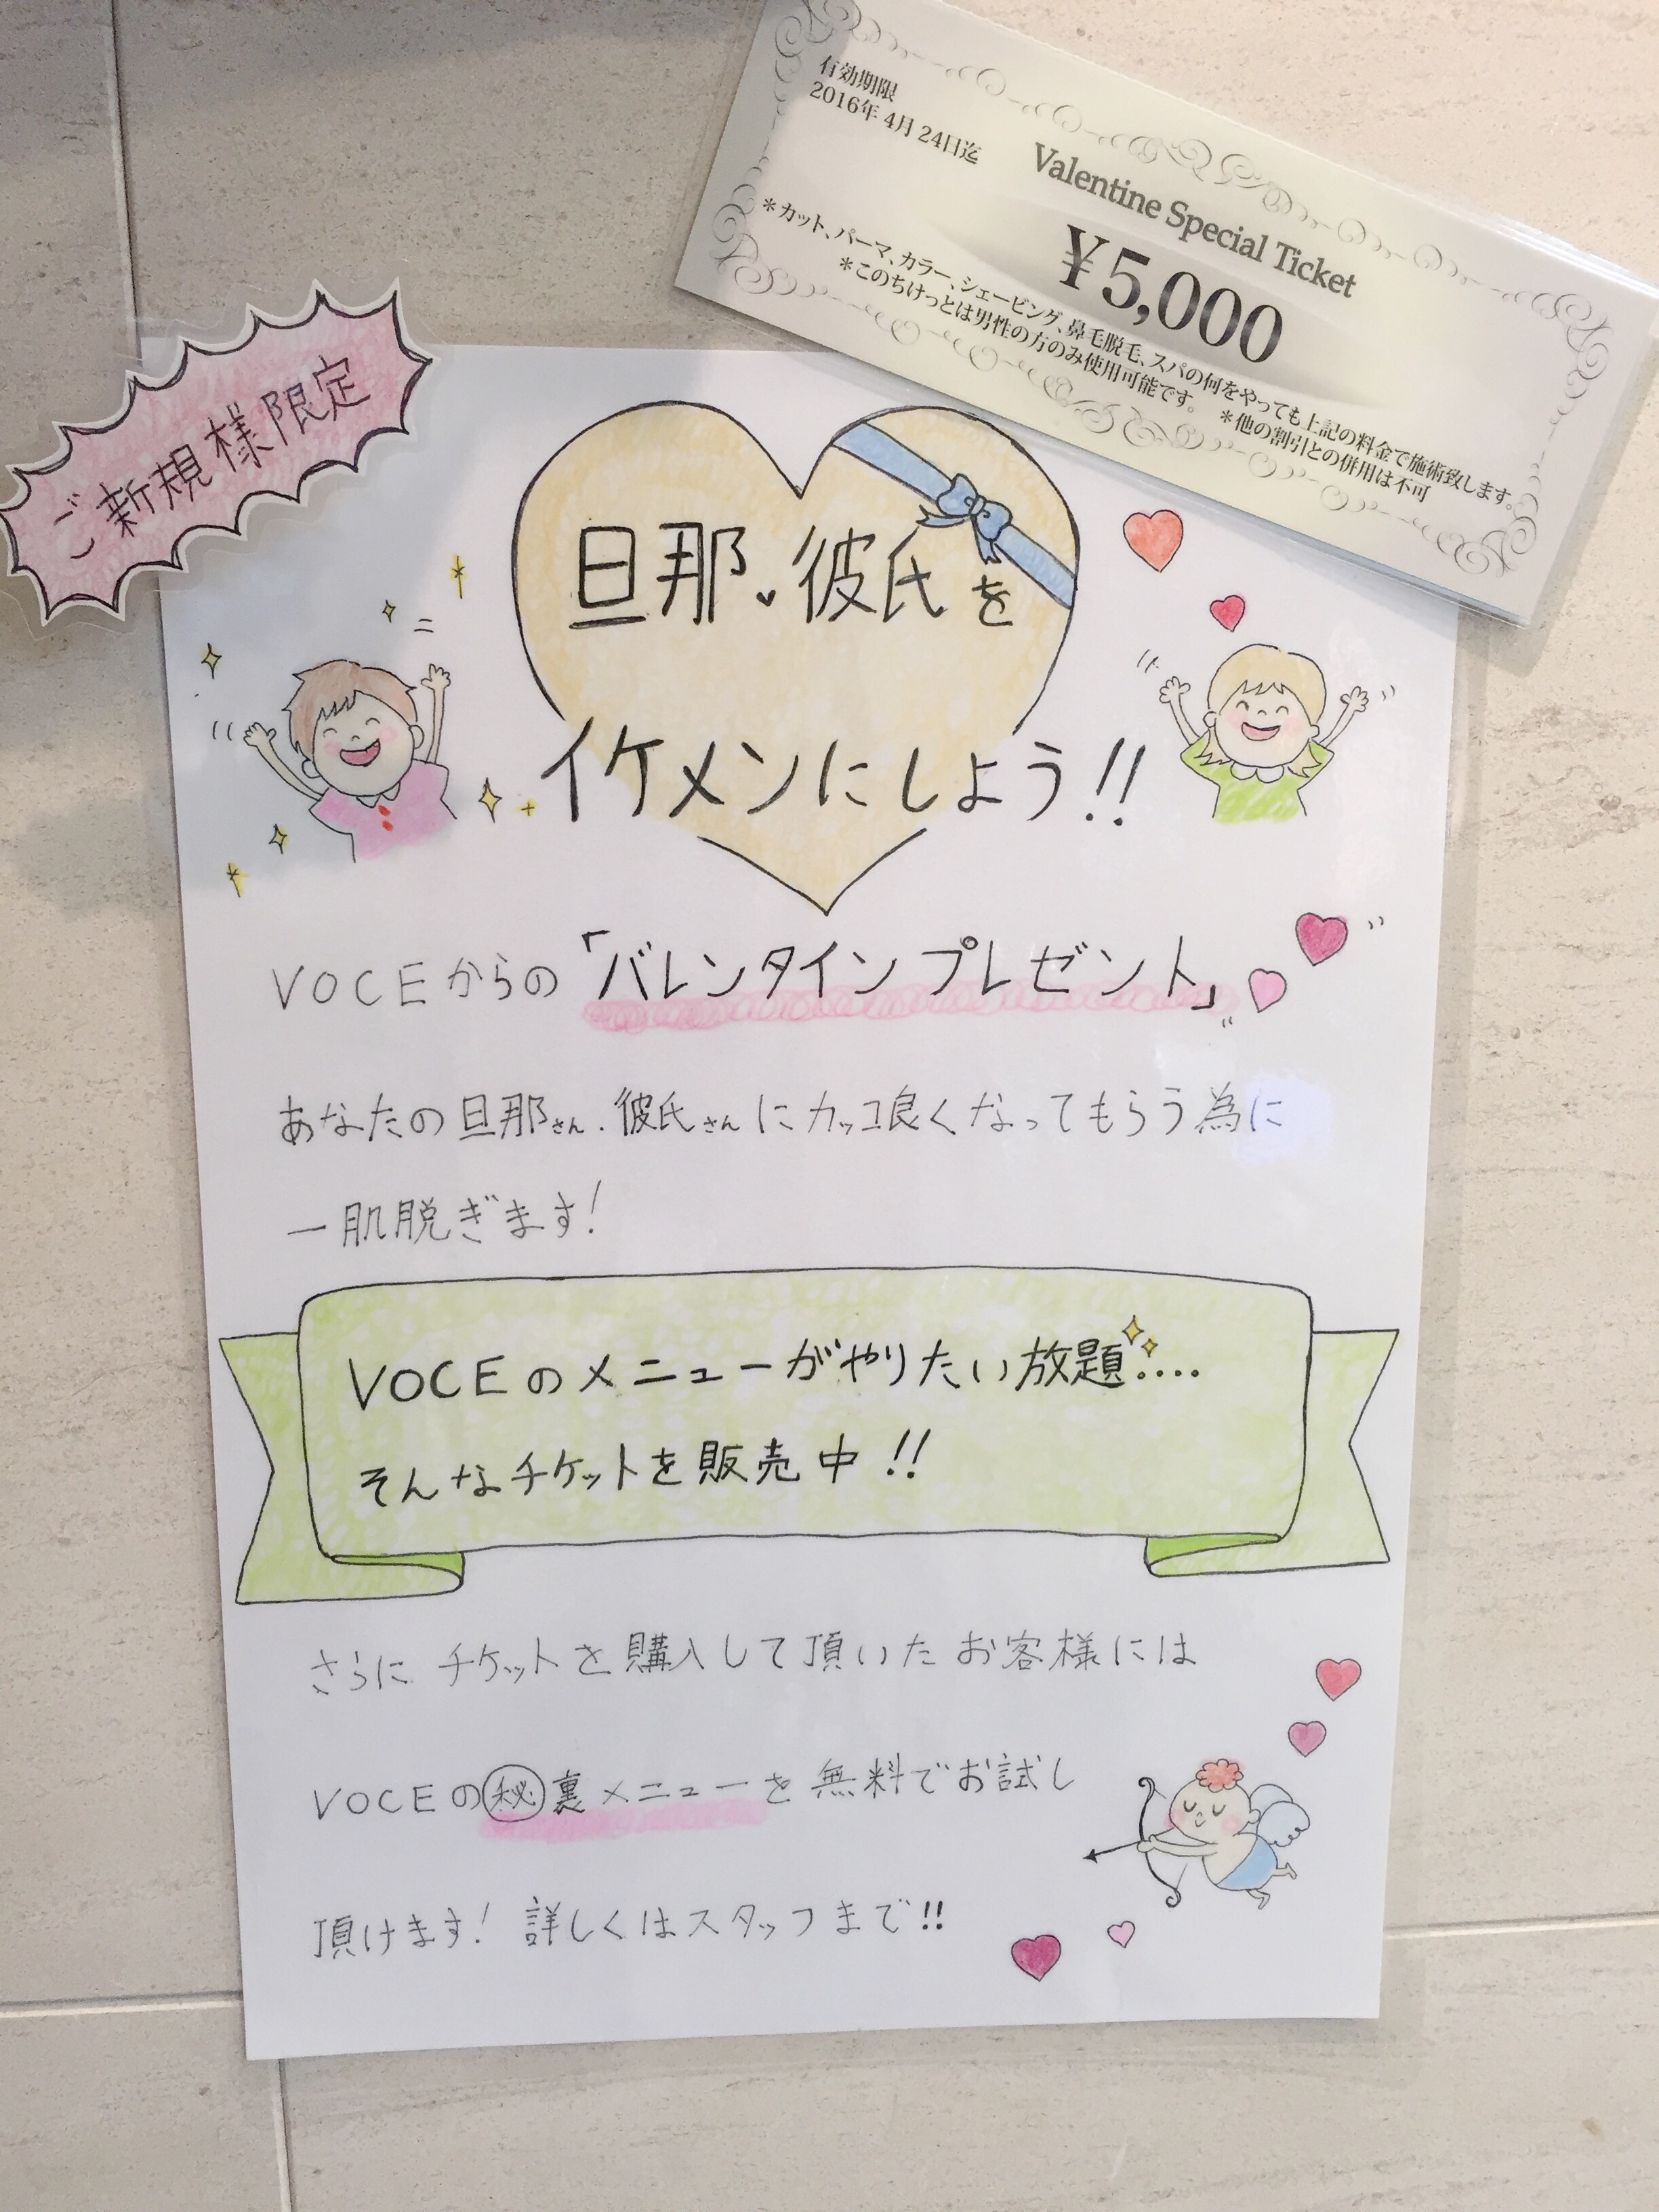 有効期限
2016年 4月 24日迄
Valentine Special Ticket
¥5,000
＊カット、パーマ、カラー、シェービング、鼻毛脱毛、スパの何をやっても上記の料金で施術致します。
＊このちけっとは男性の方のみ使用可能です。 ＊他の割引との併用は不可
ご新規様限定
旦那・彼氏を
イケメンにしよう!!
VOCEからの「バレンタインプレゼント」
あなたの旦那さん.彼氏さんにカッコ良くなってもらう為に
一肌脱ぎます!
VOCEのメニューがやりたい放題....
そんなチケットを販売中!!
さらにチケットを購入して頂いたお客様には
VOCEの㊙裏メニューを無料でお試し
頂けます! 詳しくはスタッフまで!!